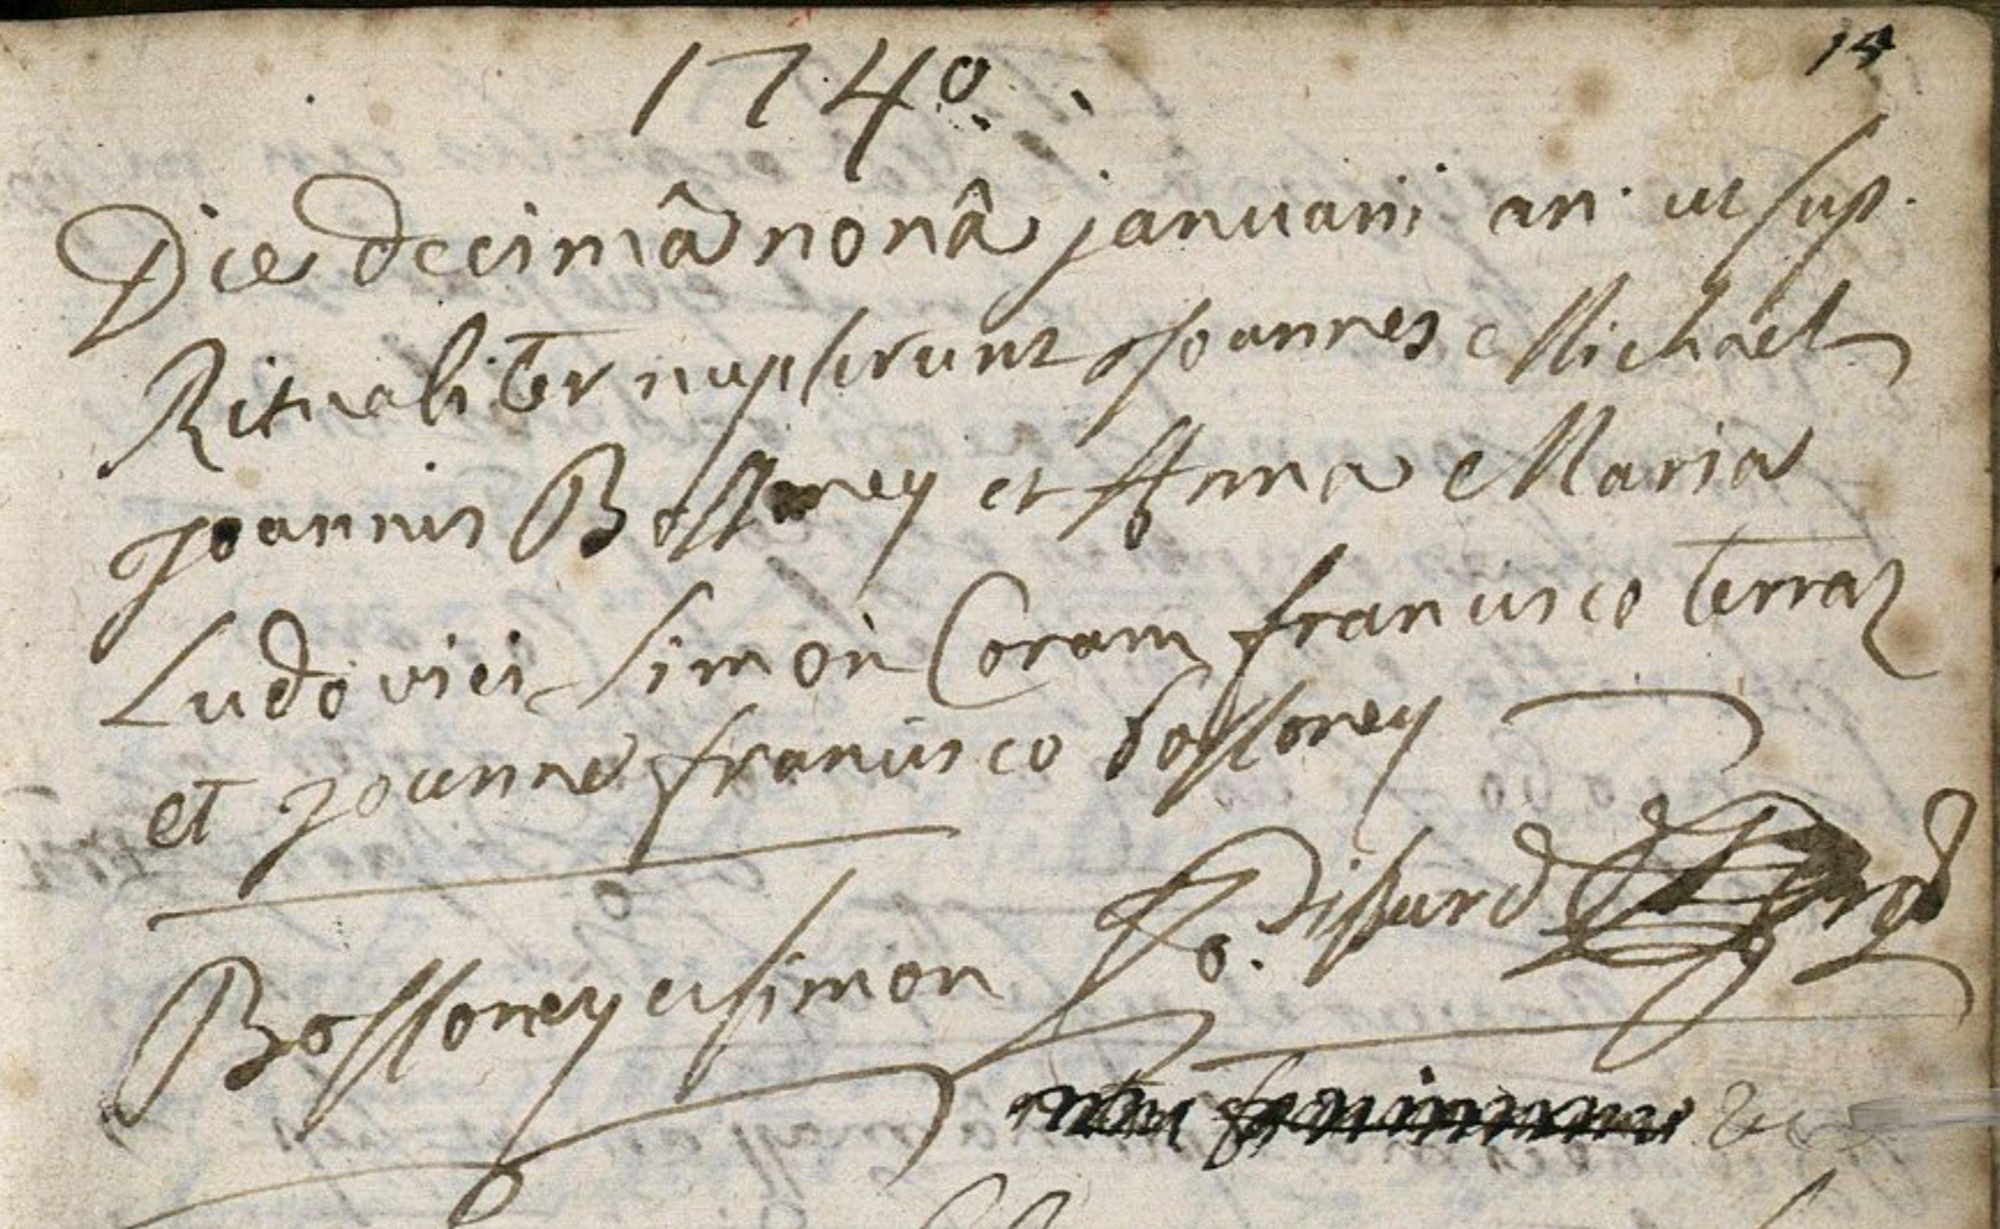 14
1740.
Die decimâ nonâ januarii an. ut sup.
Ritualiter nupserunt Joannes Michael
Joannis Bossoney et Anna Maria
Ludovici Simon Coram francisco terraz
et joanne francisco bossoney
Bossoney et simon
Dissard